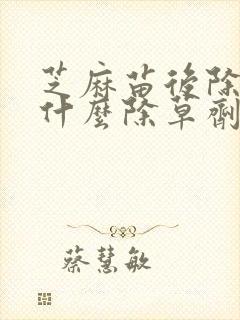 芝麻苗後除
什麼除草劑
蔡慧敏